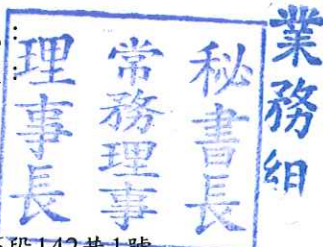 業務組
秘書長
常務理事
理事長
段142巷1號